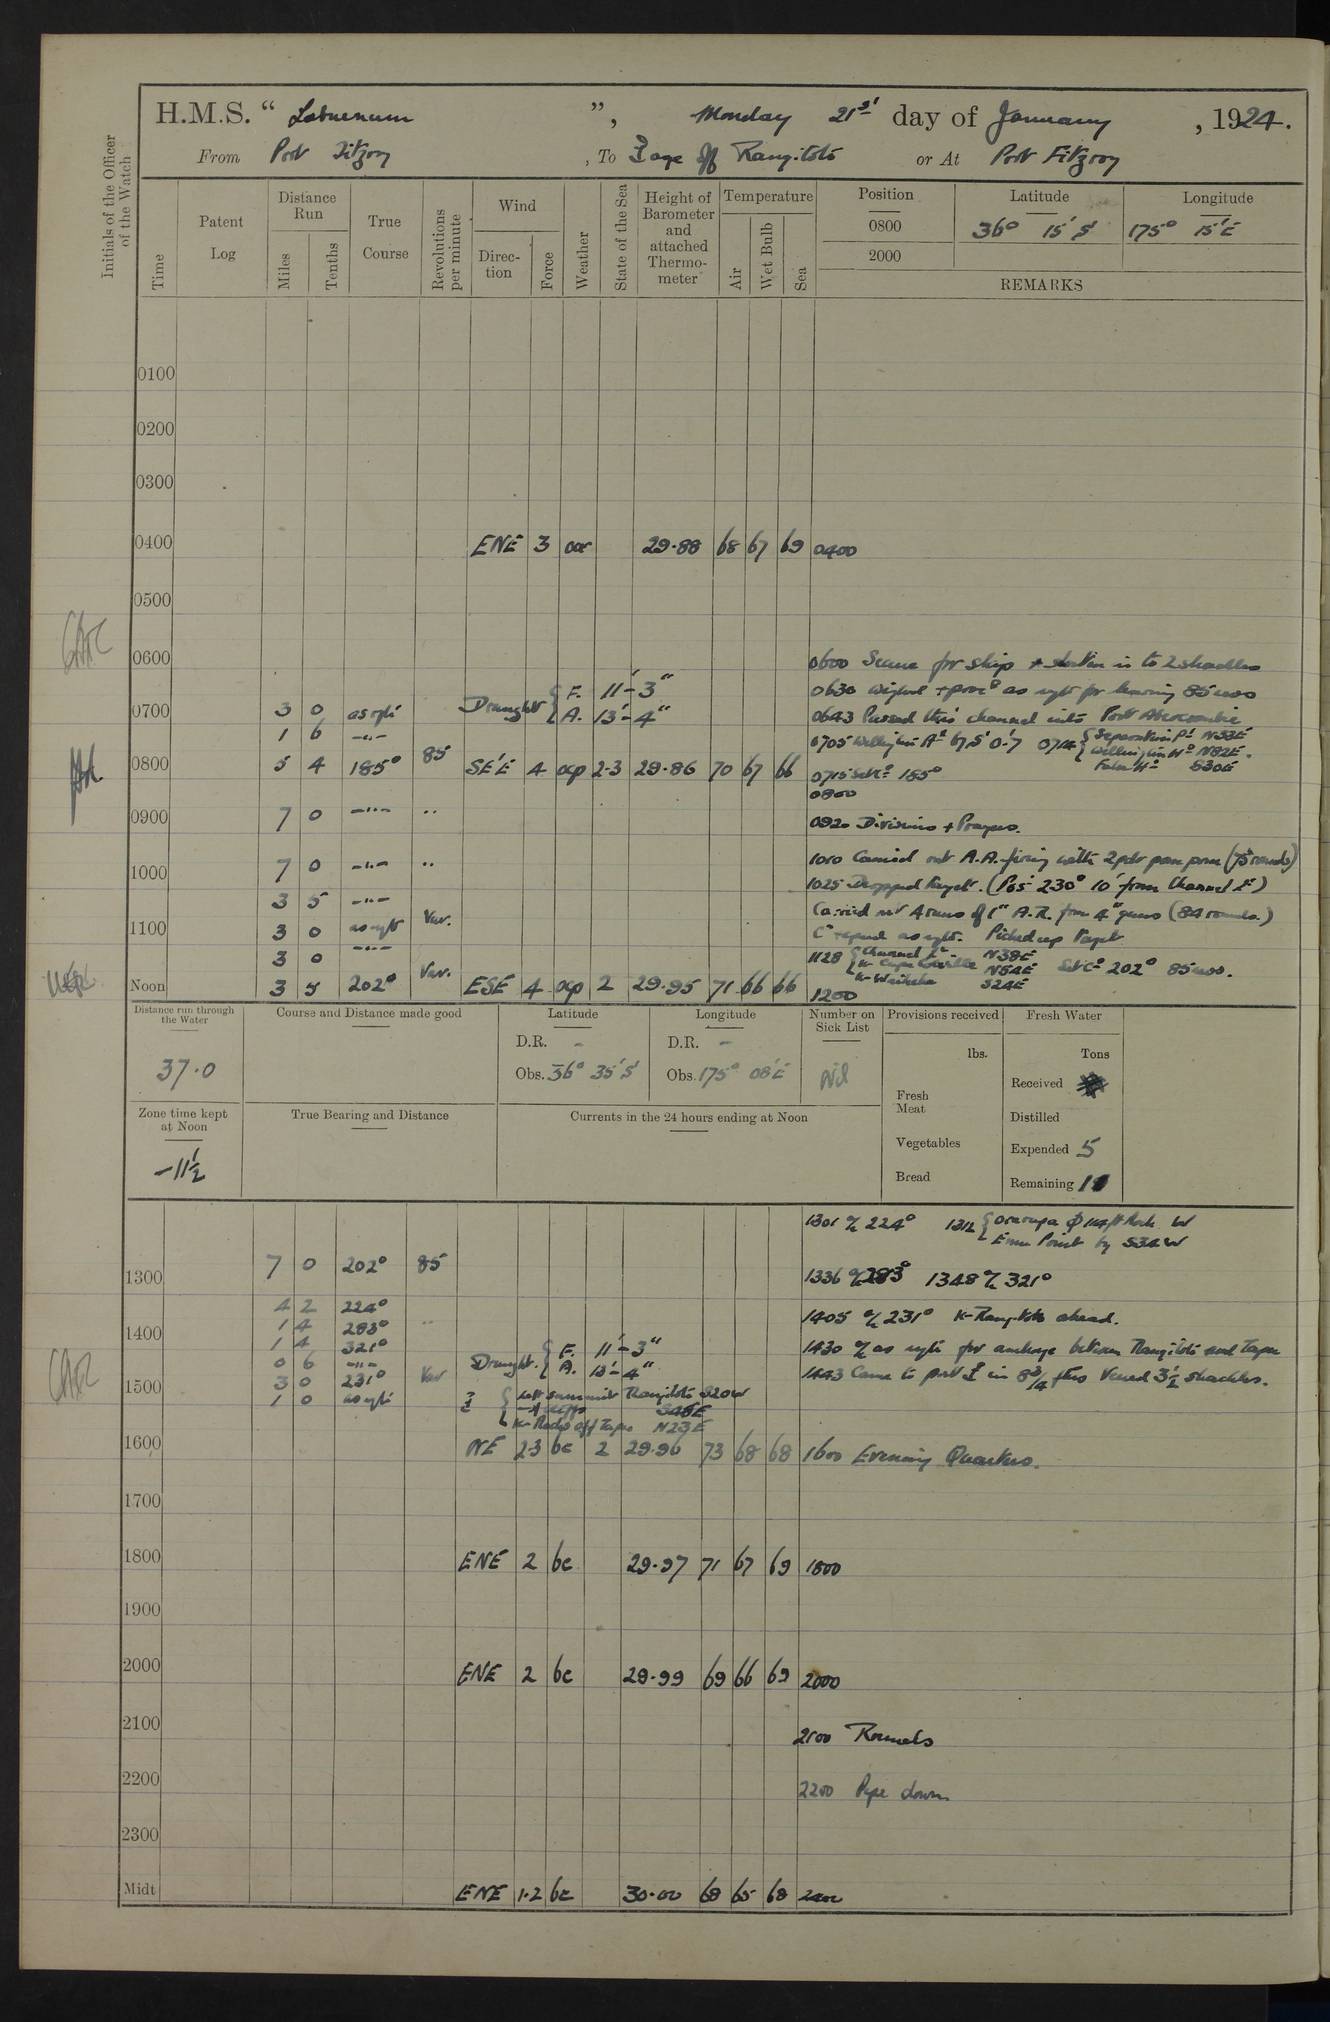 H.M.S. " Laburnum ", Monday 21st day of January, 1924.
From Port Fitzroy, To Bage off Rangitoto or At Port Fitzroy
Initials of the Officer of the Watch
Time
Patent Log
Distance Run
Miles
Tenths
True Course
Revolutions per minute
Wind
Direction
Force
Weather
State of the Sea
Height of Barometer and attached Thermometer
Temperature
Air
Wet Bulb
Sea
Position
0800
2000
Latitude
36° 15' S
Longitude
175° 15' E
REMARKS
0100
0200
0300
0400 ENE 3 29.88 68 67 69 0400
0500
0600 0600 Secure for ship + shorten in to 2 shackles
0630 Weighed + proc'd as reqte for leaving 85 revs
Draught { F. 11'-3"
A. 13'-4"
0700 3 0 as reqte
0643 Passed thro' channel into Port Abercrombie
1 6 -"-
0705 0714 { Separation Pt N33E
Wellington Hd N82E.
False Hd S30E
0800 5 4 185° 85 SE'E 4 ocp 2-3 29.86 70 67 66
0715 Set Co 185°
0800
0900 7 0 -"- "
0920 Divisions + Prayers.
1000 7 0 -"- "
1010 Carried out A.A. firing with 2pdr pom pom (75 rounds)
3 5 -"-
1025 Dropped target. (Pos 230° 10' from Channel I.)
Carried out 4 runs of 1" A.R. from 4" guns (84 rounds.)
1100 3 0 as reqte Var.
Co & speed as reqte. Picked up target
3 0 -"-
1128 { Channel I. N38E
Cape Colville N54E Set Co 202° 85 revs.
Waiheke S24E
Noon 3 5 202° Var. ESE 4 ocp 2 29.95 71 66 66 1200
Distance run through the Water
37.0
Course and Distance made good
Latitude
D.R. -
Obs. 36° 35' S
Longitude
D.R. -
Obs. 175° 08' E
Number on Sick List
Nil
Provisions received
lbs.
Fresh Meat
Vegetables
Bread
Fresh Water
Tons
Received
Distilled
Expended 5
Remaining 11
Zone time kept at Noon
-11½
True Bearing and Distance
Currents in the 24 hours ending at Noon
1301 a/c 224° 1312 { W
Emu Point by S34W
1300 7 0 202° 85
1336 a/c 283° 1348 a/c 321°
4 2 224°
1400 1 4 283° "
1405 a/c 231° Rangitoto ahead.
1 4 321°
Draught. { F. 11'-3"
A. 13'-4"
1430 a/c as reqte for anchge between Rangitoto and
0 6 -"-
1500 3 0 231° Var
1443 Came to port in 8¾ fms Veered 3½ shackles.
1 0 as reqte
{ Left summit Rangitoto S20W
S46E
Rocks off N23E
1600 NE 2-3 bc 2 29.96 73 68 68 1600 Evening Quarters.
1700
1800 ENE 2 bc 29.97 71 67 69 1800
1900
2000 ENE 2 bc 29.99 69 66 69 2000
2100
2100 Rounds
2200
2200 Pipe down
2300
Midt ENE 1-2 bc 30.00 68 65 68 2400